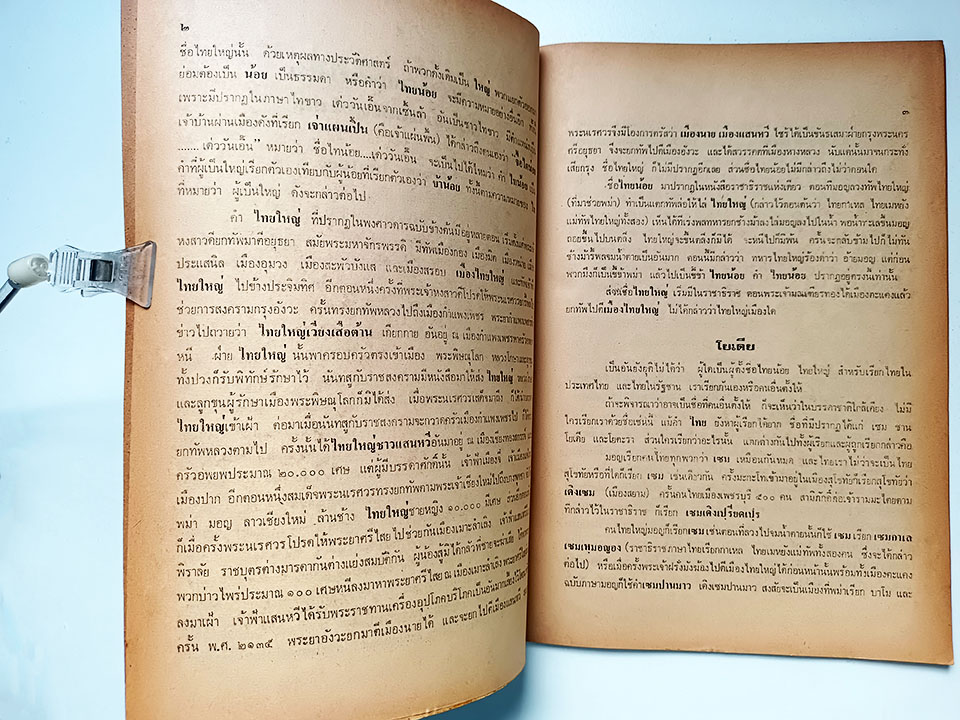 ๒
ชื่อไทยใหญ่นั้น ด้วยเหตุผลทางประวัติศาสตร์ ถ้าพวกตั้งเดิมเป็น ใหญ่ พวกแยกตัวออก
ย่อมต้องเป็น น้อย เป็นธรรมดา หรือคำว่า ไทยน้อย จะมีความหมายอย่างอื่นอีก
เพราะมีปรากฏในภาษาไทขาว เด๋ววันเอ็นจากเซ็นล้า อันเป็นชาวไทขาว
เจ้าบ้านผ่านเมืองดังที่เรียก เจ่าแผนเปิ่น (คือเจ้าแผ่นพื้น) ได้กล่าวถึงตนเองว่า
.......เด๋ววันเอ็น” หมายว่า ชื่อไทน้อย....เด๋ววันเอ็น จะเป็นไปได้ไหมว่า คำ ไทน้อย
คำที่ผู้เป็นใหญ่เรียกตัวเองเทียบกับผู้น้อยที่เรียกตัวเองว่า ข้าน้อย
ที่หมายว่า ผู้เป็นใหญ่ ดังจะกล่าวต่อไป
คำ ไทยใหญ่ ที่ปรากฏในพงศาวดารฉบับข้างต้นมีอยู่หลายตอน
หงสาวดียกทัพมาตีอยุธยา สมัยพระมหาจักรพรรดิ มีทัพเมืองกอง เมืองมิต
ประแสนิล เมืองอุมวง เมืองสะพัวบังแส และเมืองสรอบ เมืองไทยใหญ่
ไทยใหญ่ ไปข้างประจิมทิศ อีกตอนหนึ่งครั้งที่พระเจ้าหงสาวดีโปรดให้พระนเรศวร
ช่วยการสงครามกรุงอังวะ ครั้นทรงยกทัพหลวงไปถึงเมืองกำแพงเพชร
ข่าวไปถวายว่า ไทยใหญ่เวียงเสือต้าน เกียกกาย อันอยู่ ณ เมืองกำแพงเพชร
หนี ฝ่าย ไทยใหญ่ นั้นพาครอบครัวตรงเข้าเมือง พระพิษณุโลก
ทั้งปวงก็รับพิทักษ์รักษาไว้ นันทสูกับราชสงครามมีหนังสือมาให้ส่ง ไทยใหญ่
และลูกขุนผู้รักษาเมืองพระพิษณุโลกก็มิได้ส่ง เมื่อพระนเรศวรเสด็จมาถึง
ไทยใหญ่เข้าเฝ้า ต่อมาเมื่อนันทสูกับราชสงครามจะกวาดครัวเมืองกำแพงเพชรไป
ยกทัพหลวงตามไป ครั้งนั้นได้ไทยใหญ่ชาวแสนหวีอันมาอยู่ ณ
ครัวอพยพประมาณ ๒๐.๐๐๐ เศษ แต่ผู้มีบรรดาศักดิ์นั้น เจ้าฟ้าเมืองฮี
เมืองปาก อีกตอนหนึ่งสมเด็จพระนเรศวรทรงยกทัพตามพระเจ้าเชียงใหม่ไป
พม่า มอญ ลาวเชียงใหม่ ล้านช้าง ไทยใหญ่ชายหญิง ๑๐.๐๐๐ มีเศษ
ก็เมื่อครั้งพระนเรศวรโปรดให้พระยาศรีไสยไปช่วยกันเมืองเมาะลำเลิ่ง
พิราลัย ราชบุตรต่างมารดากันต่างแย่งสมบัติกัน ผู้น้องสู้มิได้กลัวพี่ชายจะฆ่าเสีย
พวกบ่าวไพร่ประมาณ ๑๐๐ เศษหนีลงมาหาพระยาศรีไสย ณ เมืองเมาะลำเลิ่ง
ลงมาเฝ้า เจ้าฟ้าแสนหวีได้รับพระราชทานเครื่องอุปโภคบริโภคเป็นอันมาก
ครั้น พ.ศ. ๒๑๓๕ พระยาอังวะยกมาตีเมืองนายได้ และจะยกไปตีเมืองแสนหวี
๓
พระนเรศวรจึงมีโองการตรัสว่า เมืองนาย เมืองแสนหวี ไซร้ ได้เป็นขัณธเสมาฝ่ายกรุงพระนคร
ศรีอยุธยา จึงจะยกทัพไปตีเมืองอังวะ และได้สวรรคตที่เมืองหางหลวง นับแต่นั้นมาจนกระทั่ง
เสียกรุง ชื่อไทยใหญ่ ก็ไม่มีปรากฏอีกเลย ส่วนชื่อไทยน้อยไม่มีกล่าวถึงไม่ว่าตอนใด
ชื่อไทยน้อย มาปรากฏในหนังสือราชาธิราชแห่งเดียว ตอนที่มอญลวงทัพไทยใหญ่
(ที่มาช่วยพม่า) ทำเป็นแตกทัพล่อให้ไล่ ไทยใหญ่ (กล่าวไว้ตอนต้นว่า ไทยกาเหล ไทยเมหลัง
แม่ทัพไทยใหญ่ทั้งสอง) เห็นได้ทีเร่งพลทหารยกช้างม้าลงไล่มอญลงไปในน้ำ พอน้ำทะเลขึ้นมอญ
ถอยขึ้นไปบนตลิ่ง ไทยใหญ่จะขึ้นตลิ่งก็มิได้ จะหนีไปก็มิพ้น ครั้นจะกลับข้ามไปก็ไม่ทัน
ช้างม้ารี้พลจมน้ำตายเป็นอันมาก ตอนนี้มีกล่าวว่า ทหารไทยใหญ่ร้องด่าว่า อ้ายมอญ แต่ก่อน
พวกมึงก็เป็นขี้ข้าพม่า แล้วไปเป็นขี้ข้า ไทยน้อย คำ ไทยน้อย ปรากฏอยู่ตรงนี้เท่านั้น
ส่วนชื่อไทยใหญ่ เริ่มมีในราชาธิราช ตอนพระเจ้ามณเฑียรทองได้เมืองตะแคงแล้ว
ยกทัพไปตีเมืองไทยใหญ่ ไม่ได้กล่าวว่าไทยใหญ่เมืองใด
โยเดีย
เป็นอันยังยุติไม่ได้ว่า ผู้ใดเป็นผู้ตั้งชื่อไทยน้อย ไทยใหญ่ สำหรับเรียกไทยใน
ประเทศไทย และไทยในรัฐฉาน เราเรียกกันเองหรือคนอื่นตั้งให้
ถ้าจะพิจารณาว่าอาจเป็นชื่อที่คนอื่นตั้งให้ ก็จะเห็นว่าในบรรดาชาติใกล้เคียง ไม่มี
ใครเรียกเราด้วยชื่อเช่นนี้ แม้คำ ไทย ยังหาผู้เรียกได้ยาก ชื่อที่มีปรากฏได้แก่ เซม ชาน
โยเดีย และโยตะรา ส่วนใครเรียกว่าอะไรนั้น แตกต่างกันไปทั้งผู้เรียกและผู้ถูกเรียกกล่าวคือ
มอญเรียกคนไทยทุกพวกว่า เซม เหมือนกันหมด และไทยเราไม่ว่าจะเป็นไทย
สุโขทัยหรือที่ใดก็เรียก เซม เช่นเดียวกัน ครั้งมะกะโทเข้ามาอยู่ในเมืองสุโขทัยก็เรียกสุโขทัยว่า
เดิงเซม (เมืองสยาม) ครั้นคนไทยเมืองเพชรบุรี ๕๐๐ คน สามิภักดิ์ต่อเจ้ารามมะไตยตาม
ที่กล่าวไว้ในราชาธิราช ก็เรียก เซมเดิงเปฺรียดเปฺร
คนไทยใหญ่มอญก็เรียกเซม เช่นตอนที่ลวงไปจมน้ำตายนั้นก็ใช้ เซม เรียก เซมกาเล
เซมเหฺมอญอง (ราชาธิราชภาษาไทยเรียกกาเหล ไทยเมหลังแม่ทัพทั้งสองคน ซึ่งจะได้กล่าว
ต่อไป) หรือเมื่อครั้งพระเจ้าฝรั่งมังฆ้องไปตีเมืองไทยใหญ่ได้ก่อนหน้านั้นพร้อมทั้งเมืองตะแคง
ฉบับภาษามอญก็ใช้คำเซมปานมาว เดิงเซมปานมาว สงสัยจะเป็นเมืองที่พม่าเรียก บาโม และ